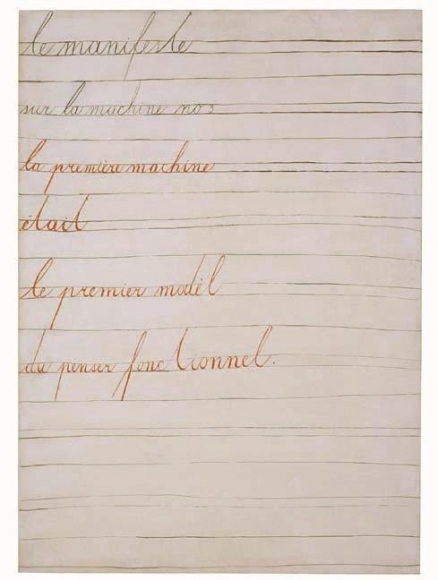 le manifeste
sur la machine no3
la première machine
était
le premier modèl
du penser fonctionnel.